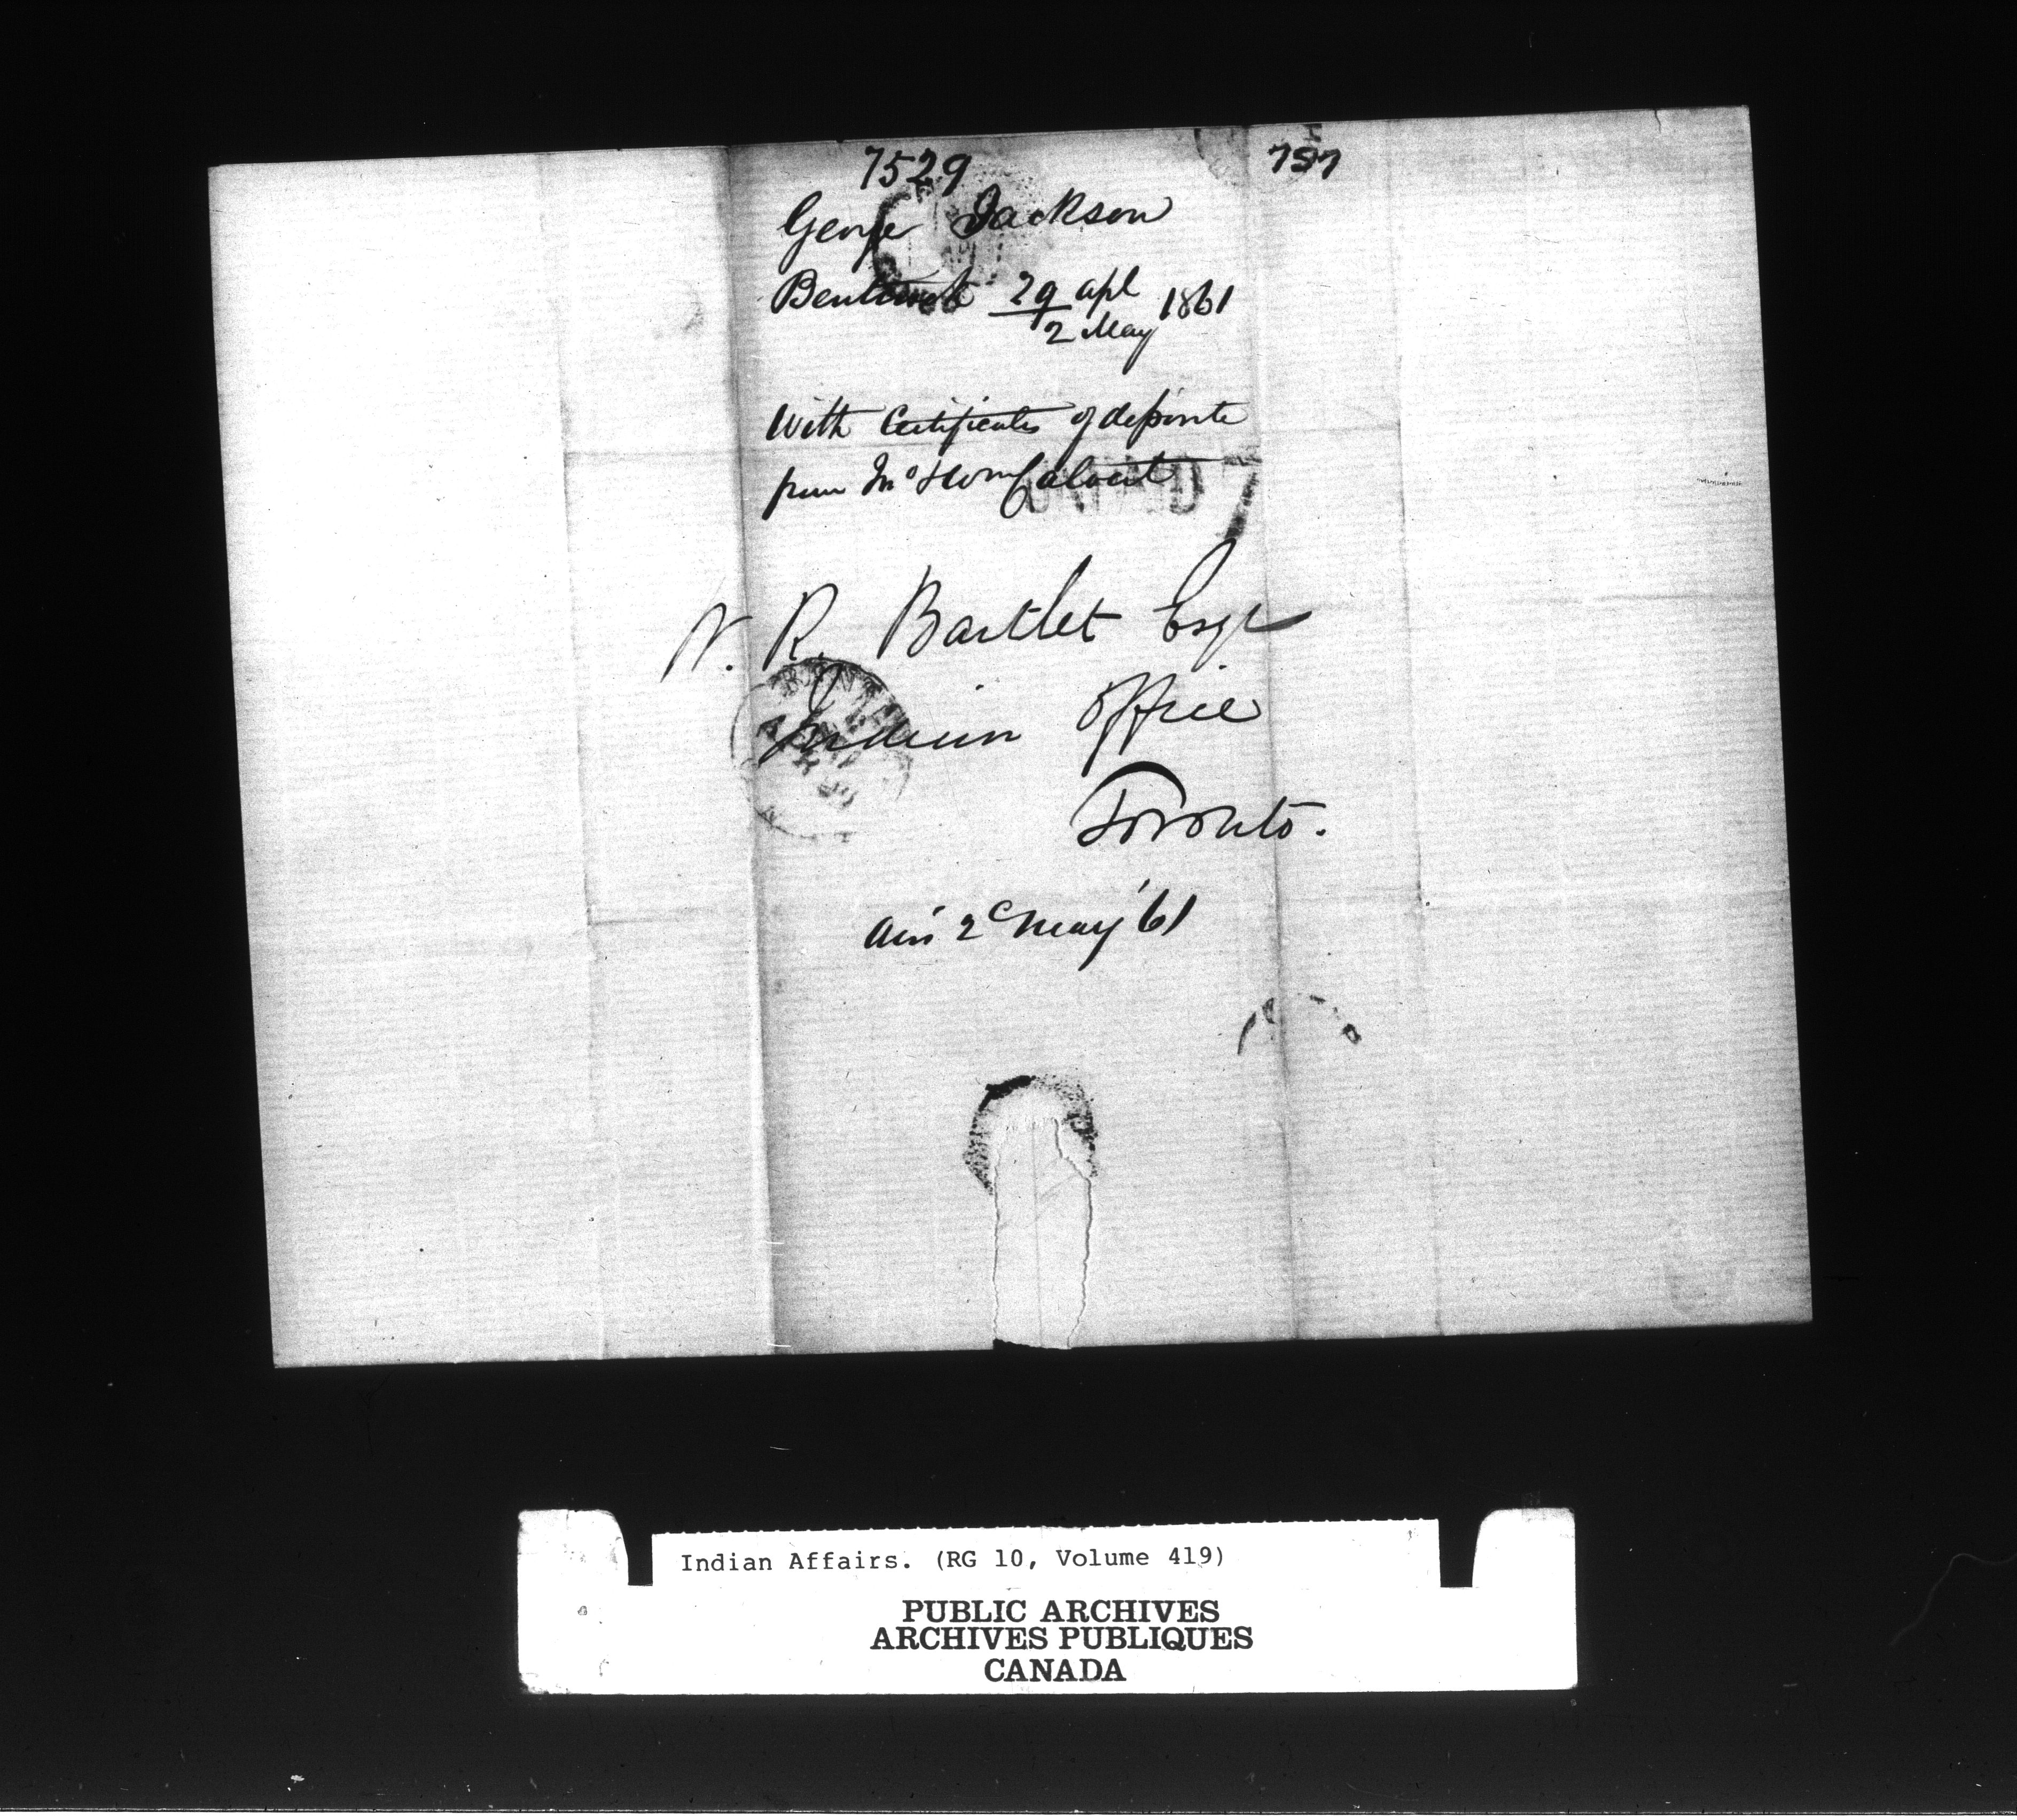 7529
797
George Jackson
Bentinck 29 apl 1861
2 May
With Certificates of deposite
from
W. R. Bartlet Esqr
Indian Office
Toronto.
2 May '61
Indian Affairs. (RG 10, Volume 419)
PUBLIC ARCHIVES
ARCHIVES PUBLIQUES
CANADA